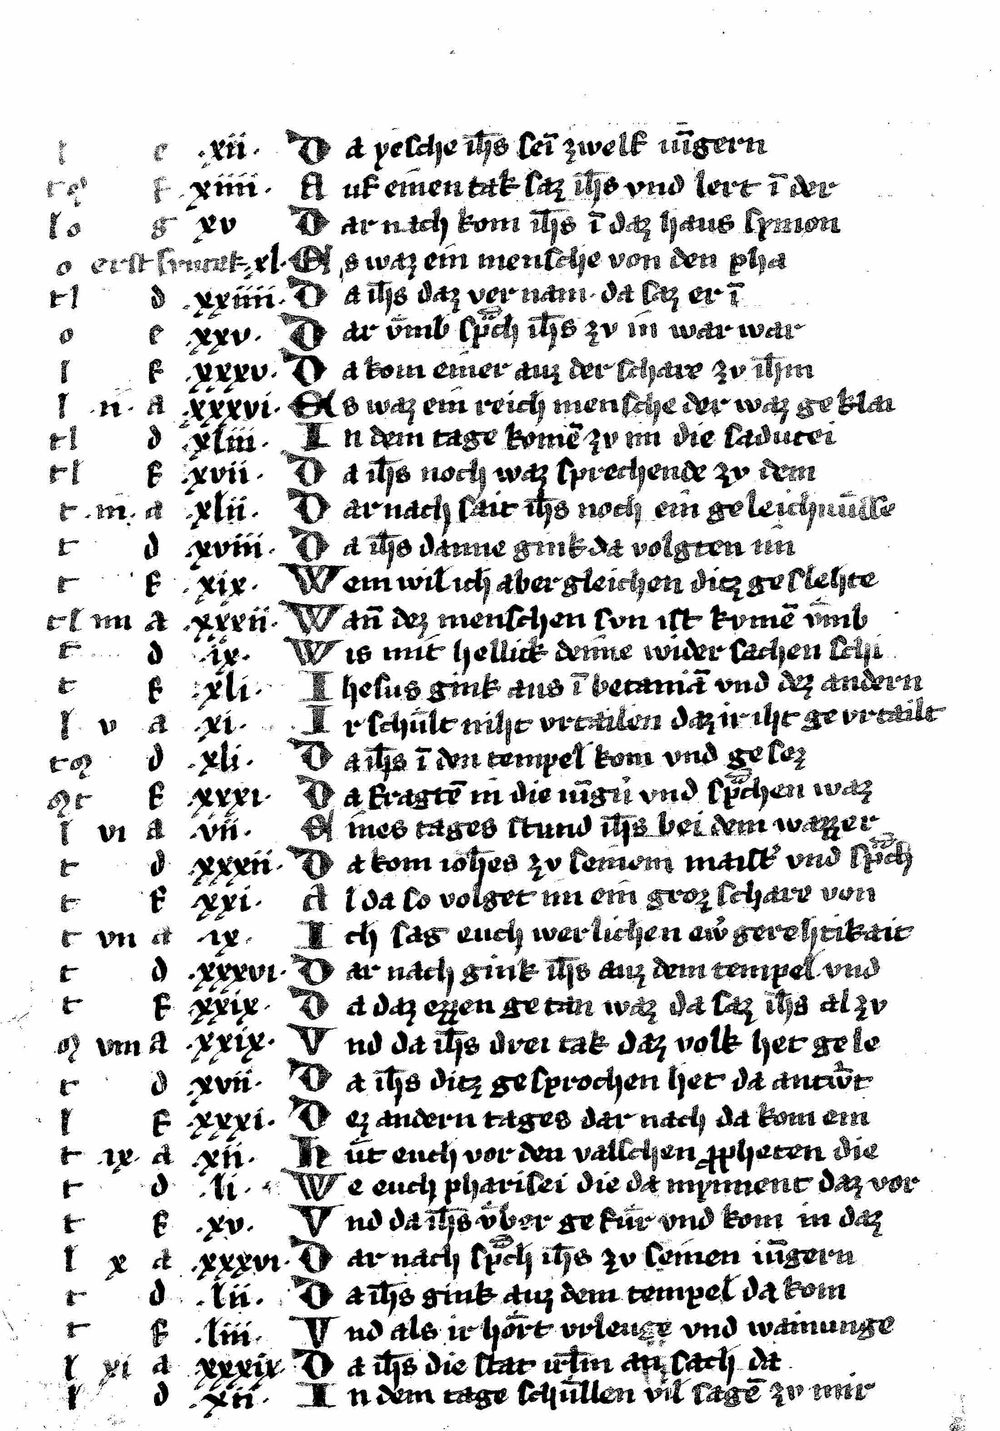 t e ·xii· Da yesche ih̅s sei̅ zwelf iu̅gern
f xiiii· Auf einen tak saz ih̅s vnd lert i̅ der
l o g xv Dar nach kom ih̅s i̅ daz haus symon
o erst xl· Es waz ein mensche von den pha
t l d ·xxiiii· Da ih̅s daz ver nam· da saz er i̅
o e ·xxv· Dar v̅mb sp̅ch ih̅s zv in war war
l f ·xxxv· Da kom einer auz der schare zv ih̅m
l ·ii· a ·xxxvi· Es waz ein reich mensche der waz ge klai
t l d ·xliii· In dem tage kome̅ zv im die saducei
t l f ·xvii· Da ih̅s noch waz sprechende zv dem
t ·iii· a ·xlii· Dar nach sait ih̅s noch ein geleichnu̅sse
t d ·xviii· Da ih̅s danne gink da volgten im
t f ·xix· Wem wil ich aber gleichen ditz geslehte
t l iiii a ·xxxii· Wan̅ dez menschen svn ist kvme̅ v̅mb
t d ·ix· Wis mit hellick denne wider sachen schi
t f ·xli· Ihesus gink aus i̅ betania̅ vnd dez andern
l v a ·xi· Ir schu̅lt niht vrtailen daz ir iht ge vrtailt
d ·xli· Da ih̅s i̅ den tempel kom vnd ge sez
f ·xxxi· Da fragte̅ in die iu̅g͛ vnd sp̅chen waz
l vi a ·vii· Eines tages stund ih̅s bei dem wazzer
t d ·xxxii· Da kom ioh̅es zv seinem maist͛ vnd sp̅ch
t f ·xxi· Al da so volget im ein groz schare von
t vii a ·ix· Ich sag euch werlichen ew͛ gerehtikait
t d ·xxxvi· Dar nach gink ih̅s auz dem tempel vnd
t f ·xxix· Da daz ezzen getan waz da saz ih̅s al zv
viii a ·xxix· Vnd da ih̅s drei tak daz volk het gele
t d ·xvii· Da ih̅s ditz gesprochen het da antw͛t
l f ·xxxi· Dez andern tages dar nach da kom ein
t ·ix· a ·xii· Hu̅t euch vor den valschen propheten die
t d ·li· We euch pharisei die da mynnent daz vor
t f ·xv· Vnd da ih̅s v̅ber ge fu̅r vnd kom in daz
l x a ·xxxvi· Dar nach sp̅ch ih̅s zv seinen iu̅gern
t d ·lii· Da ih̅s gink auz dem tempel da kom
t f ·liii· Vnd als ir ho̅rt vrleuge vnd wainunge
l xi a ·xxxix· Da ih̅s die stat irl̅m an sach da
l d ·xii· In dem tage schu̅llen vil sage̅ zv mir